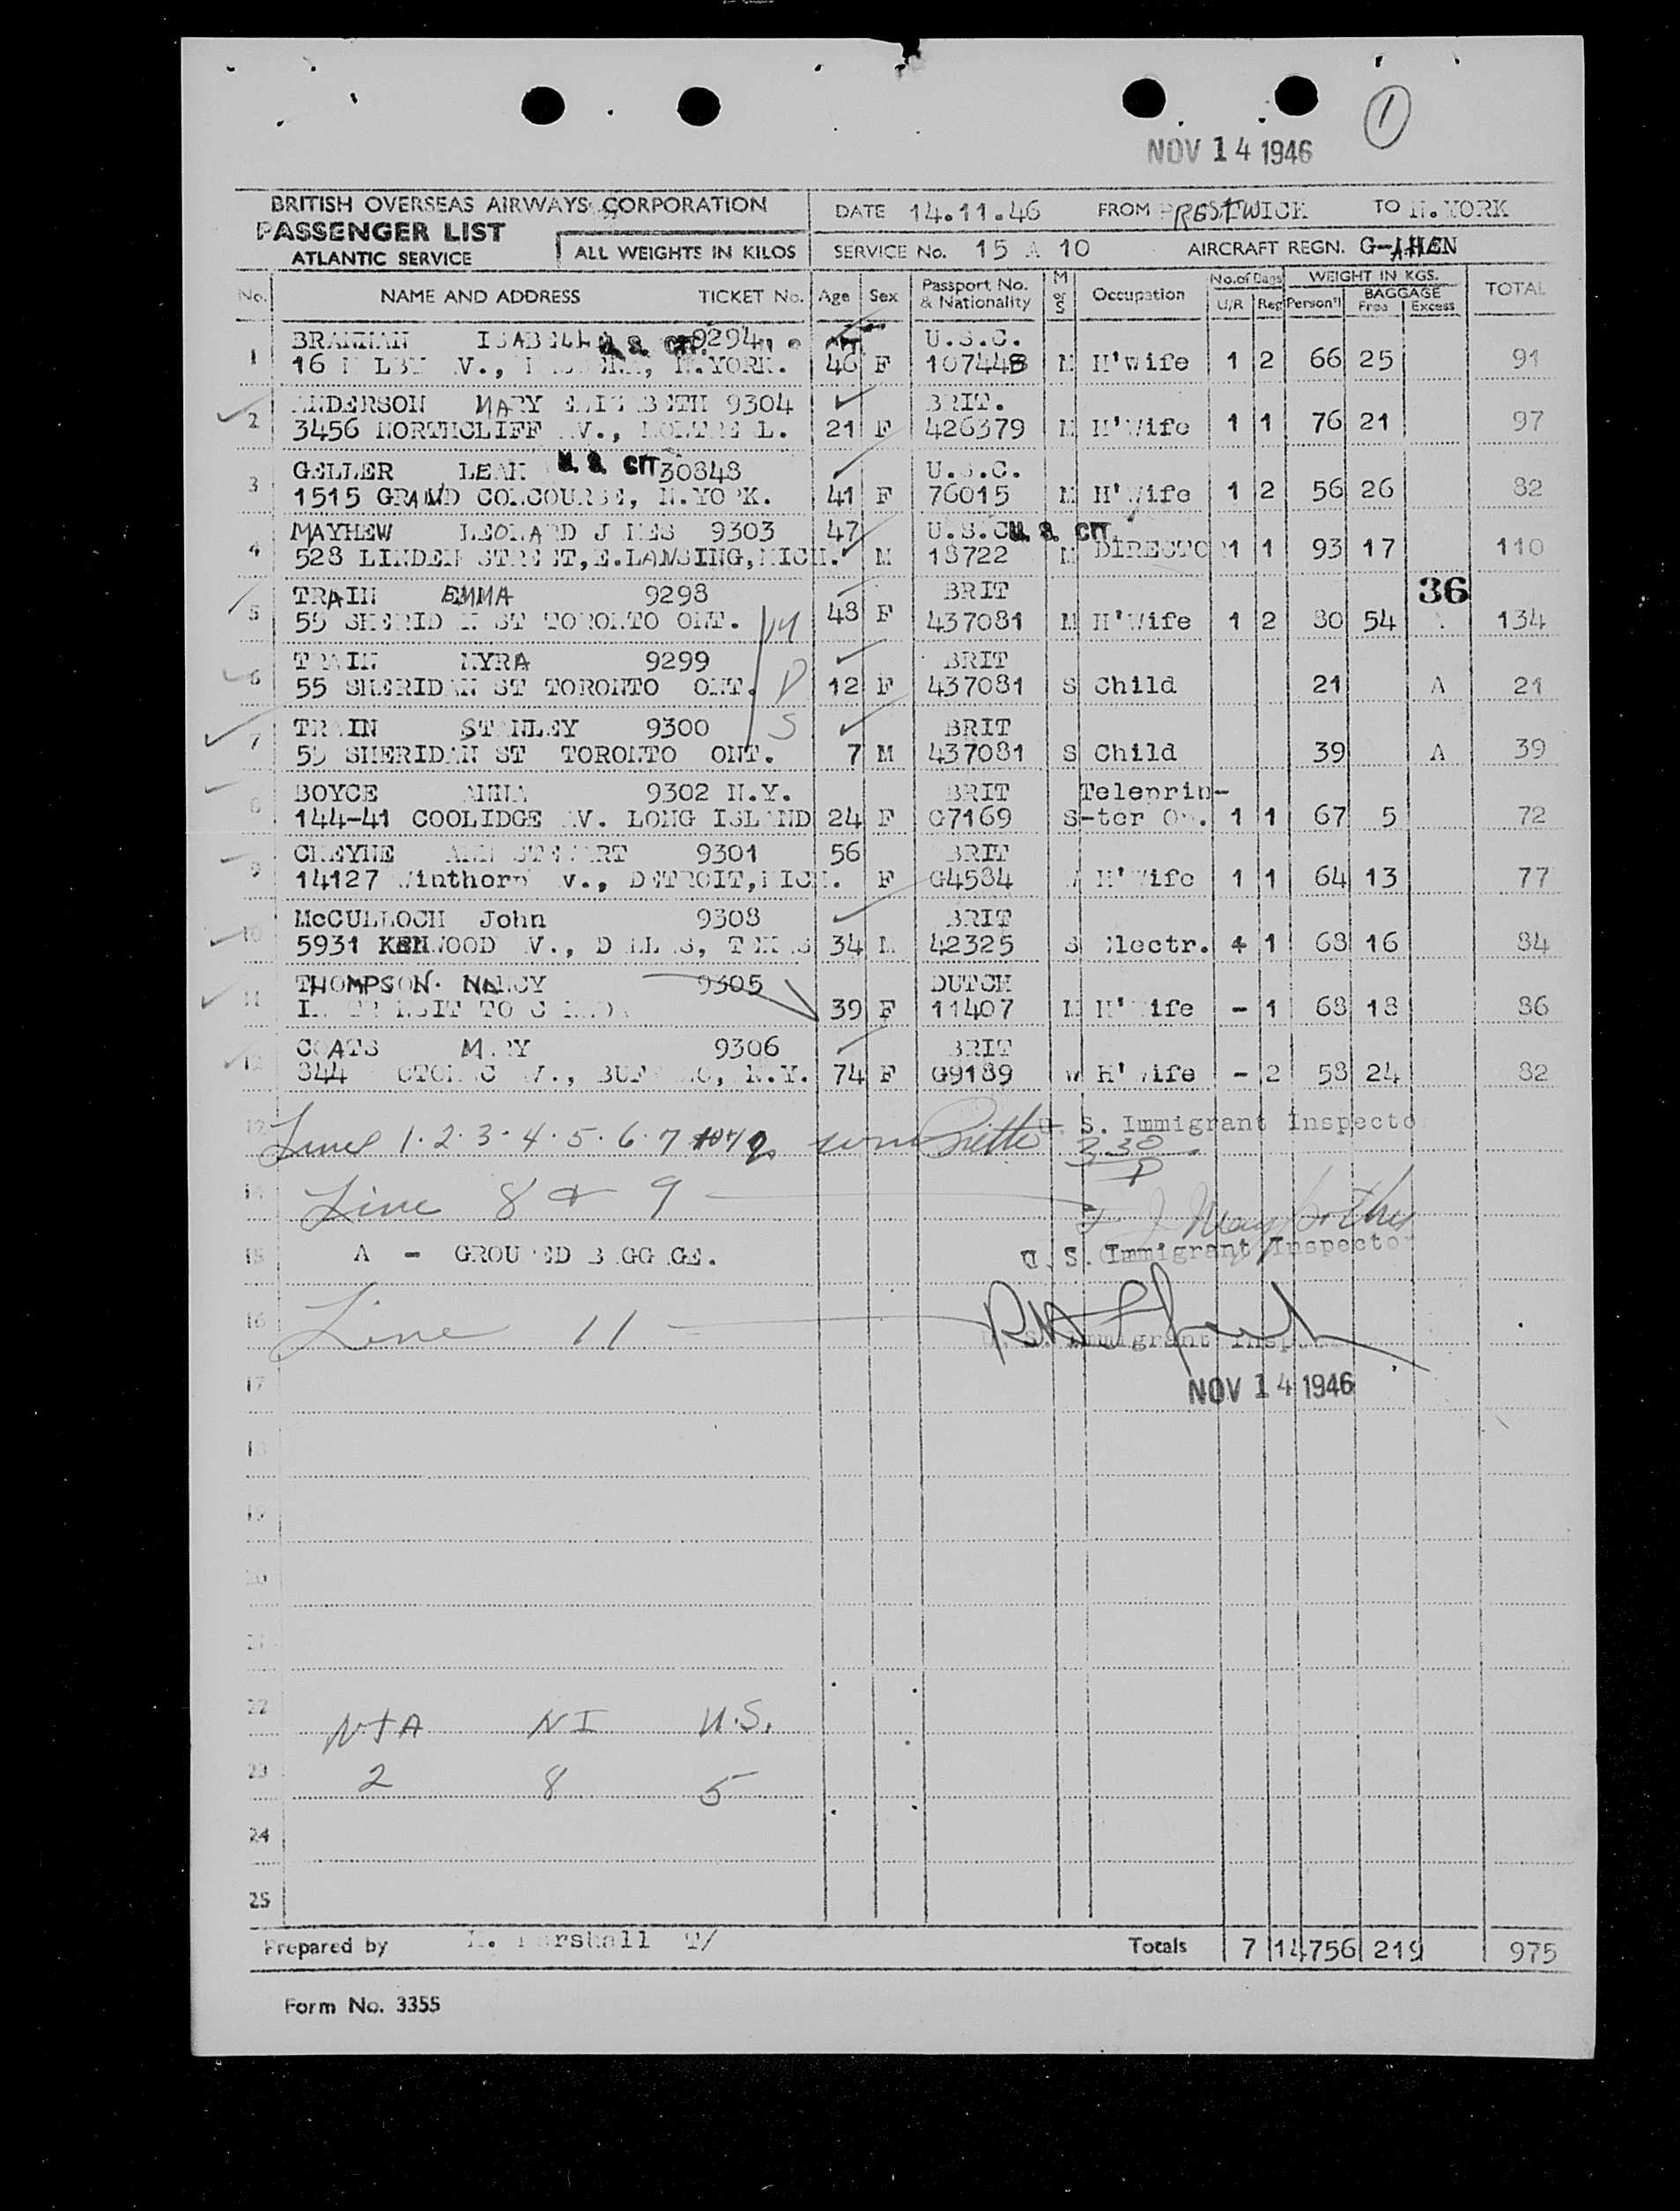 1
NOV 14 1946
BRITISH OVERSEAS AIRWAYS CORPORATION
PASSENGER LIST
ATLANTIC SERVICE
ALL WEIGHTS IN KILOS
DATE 14.11.46 FROM PRESTWICK TO N.YORK
SERVICE No. 15 A 10 AIRCRAFT REGN. G-AHEN
No. NAME AND ADDRESS TICKET No. Age Sex Passport No. & Nationality M or S Occupation No. of Bags U/R Reg WEIGHT IN KGS. Person'l BAGGAGE Free Excess TOTAL
ISABELLA U. S. CIT. 9294 U.S.C.
1 16 N.YORK. 46 F 107448 M H'wife 1 2 66 25 91
ANDERSON MARY ELIZABETH 9304 BRIT.
2 3456 NORTHCLIFF AV., MONTREAL. 21 F 426379 M H'Wife 1 1 76 21 97
GELLER LEAH U. S. CIT 30848 U.S.C.
3 1515 GRAND CONCOURSE, N.YORK. 41 F 76015 M H'Wife 1 2 56 26 82
MAYHEW LEONARD JAMES 9303 47 U.S.C U. S. CIT.
4 528 LINDEN STREET,E.LANSING,MICH. M 18722 M DIRECTOR 1 1 93 17 110
TRAIN EMMA 9298 BRIT 36
5 55 SHERIDAN ST TORONTO ONT. M 48 F 437081 M H'Wife 1 2 80 54 A 134
TRAIN MYRA 9299 BRIT
6 55 SHERIDAN ST TORONTO ONT. D 12 F 437081 S Child 21 A 21
TRAIN STANLEY 9300 S BRIT
7 55 SHERIDAN ST TORONTO ONT. 7 M 437081 S Child 39 A 39
BOYCE ANNA 9302 N.Y. BRIT Teleprin-
8 144-41 COOLIDGE AV. LONG ISLAND 24 F G7169 S -ter Op. 1 1 67 5 72
CHEYNE ANN STEWART 9301 56 BRIT
9 14127 Winthorp Av., DETROIT,MICH. F G4584 W H'Wife 1 1 64 13 77
McCULLOCH John 9308 BRIT
10 5931 KENWOOD AV., DALLAS, TEXAS 34 M 42325 S Electr. 1 68 16 84
THOMPSON. NANCY 9305 DUTCH
11 IN TRANSIT TO CANADA 39 F 11407 M H'Wife - 1 68 18 86
COATS MARY 9306 BRIT
12 844 AV., BUFFALO, N.Y. 74 F G9189 W H'Wife - 2 58 24 82
U. S. Immigrant Inspector
Line 1.2.3.4.5.6.7 3 30 P
14 Line 8 & 9
15 A - GROUPED BAGGAGE. U. S. Immigrant Inspector
16 Line 11
U. S. Immigrant Inspector
17 NOV 14 1946
18
19
20
21
22 NIA NI U.S.
23 2 8 5
24
25
Prepared by Marshall T/ Totals 7 14 756 219 975
Form No. 3355